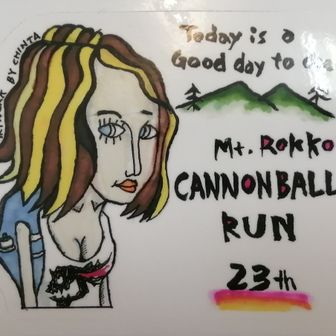 Today is a
Good day to
Mt. Rokko
CANNONBALL
RUN
23th
ARTWORK BY CHINTA